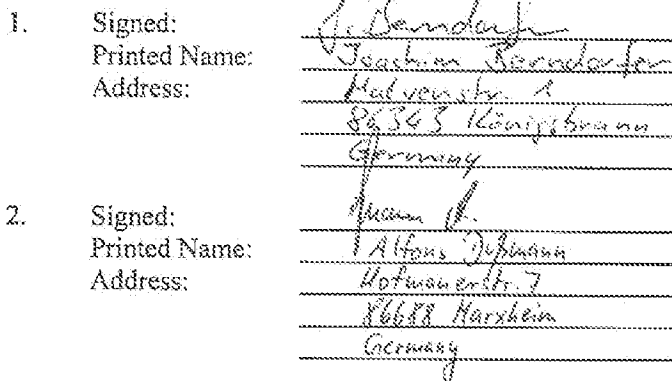 1. Signed: J. Berndorfer
Printed Name: Joachim Berndorfer
Address: Malvenstr. 1
86343 Königsbrunn
Germany
2. Signed:
Printed Name: Alfons Dußmann
Address: Hofmauerstr. 7
86688 Marxheim
Germany